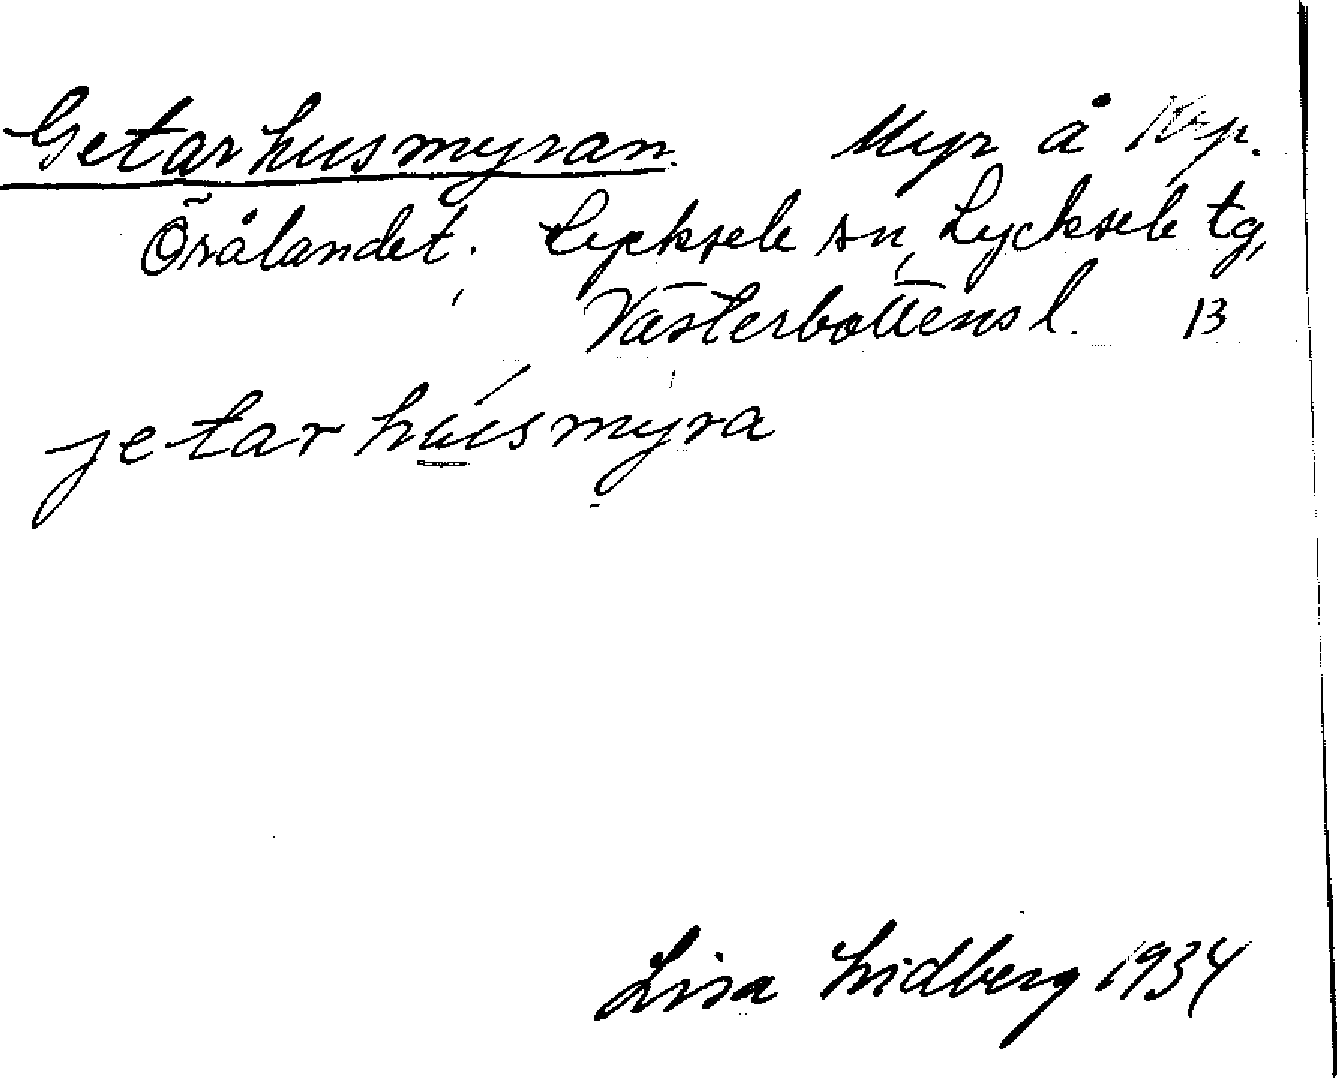 Getarhusmyran. Myr å Krp.
Örålandet. Lycksele sn, Lycksele tg,
Västerbottens l. 13
jetarhúsmyra
Lisa Lidberg 1934